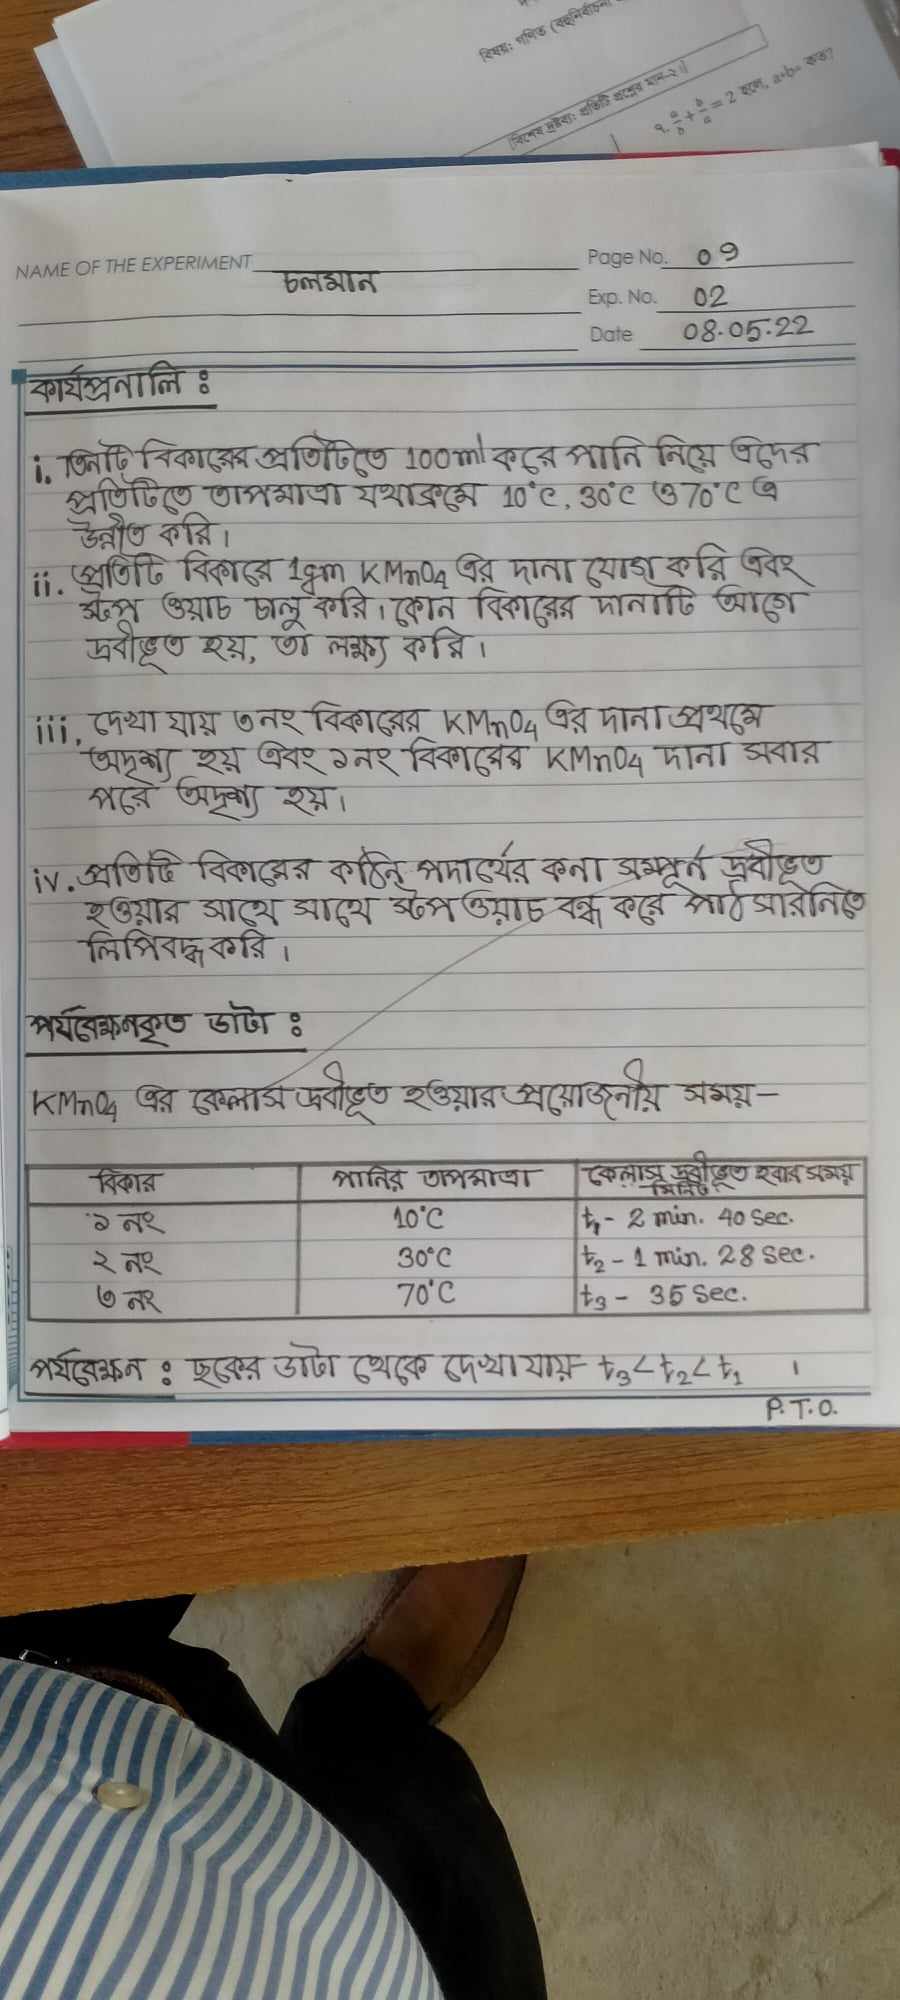 বিষয়: গণিত (বহুনির্বাচনী
বিশেষ দ্রষ্টব্য: প্রতিটি প্রশ্নের মান-২॥
৭. a/b + b/a = 2 হলে, a+b= কত?
NAME OF THE EXPERIMENT চলমান
Page No. 09
Exp. No. 02
Date 08.05.22
কার্যপ্রনালি :
i. তিনটি বিকারের প্রতিটিতে 100ml করে পানি নিয়ে এদের
প্রতিটিতে তাপমাত্রা যথাক্রমে 10°C, 30°C ও 70°C এ
উন্নীত করি।
ii. প্রতিটি বিকারে 1gm KMnO4 এর দানা যোগ করি এবং
স্টপ ওয়াচ চালু করি। কোন বিকারের দানাটি আগে
দ্রবীভূত হয়, তা লক্ষ্য করি।
iii. দেখা যায় ৩নং বিকারের KMnO4 এর দানা প্রথমে
অদৃশ্য হয় এবং ১নং বিকারের KMnO4 দানা সবার
পরে অদৃশ্য হয়।
iv. প্রতিটি বিকারের কঠিন পদার্থের কনা সম্পূর্ন দ্রবীভূত
হওয়ার সাথে সাথে স্টপ ওয়াচ বন্ধ করে পাঠ সারনিতে
লিপিবদ্ধ করি।
পর্যবেক্ষনকৃত ডাটা :
KMnO4 এর কেলাস দ্রবীভূত হওয়ার প্রয়োজনীয় সময়–
বিকার পানির তাপমাত্রা কেলাস দ্রবীভূত হবার সময়
মিনিট
১ নং 10°C t1- 2 min. 40 sec.
২ নং 30°C t2 - 1 min. 28 sec.
৩ নং 70°C t3 - 35 sec.
পর্যবেক্ষন : ছকের ডাটা থেকে দেখা যায়- t3< t2< t1 ।
P.T.O.